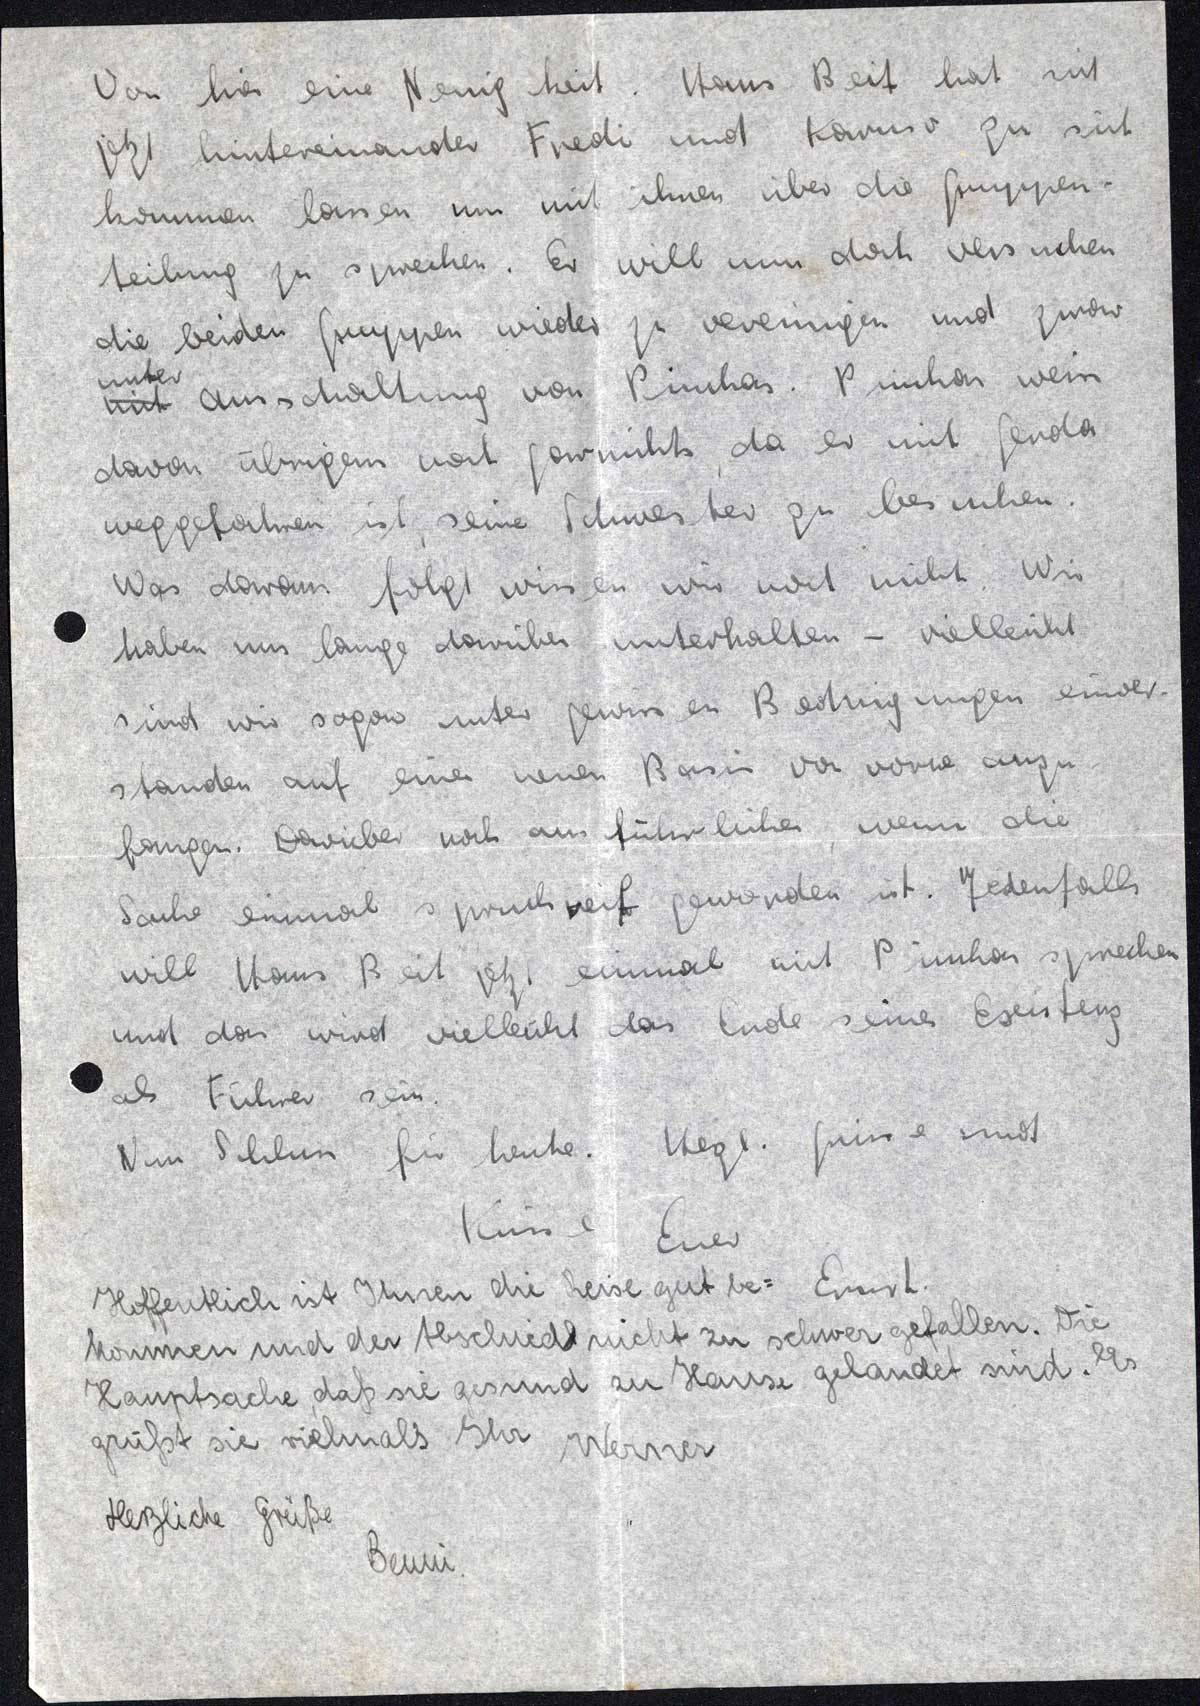 Von hier eine Neuigkeit. Hans Beit hat sich
jetzt hintereinander Fredi und Karuso zu sich
kommen lassen um mit ihnen über die Gruppen-
teilung zu sprechen. Er will nun doch versuchen
die beiden Gruppen wieder zu vereinigen und zwar
unter
mit Ausschaltung von Pinchas. Pinchas weiss
davon übrigens noch garnichts, da er mit Gerda
weggefahren ist, seine Schwester zu besuchen.
Was daraus folgt wissen wir noch nicht. Wir
haben uns lange darüber unterhalten – vielleicht
sind wir sogar unter gewissen Bedingungen einver-
standen auf einer neuen Basis von vorne anzu-
fangen. Darüber noch ausführlicher, wenn die
Sache einmal spruchreif geworden ist. Jedenfalls
will Hans Beit jetzt einmal mit Pinchas sprechen
und das wird vielleicht das Ende seiner Existenz
als Führer sein.
Nun Schluss für heute. Hezl. Grüsse und
Küsse Euer
Ernst.
Hoffentlich ist Ihnen die Reise gut be=
kommen und der Abschied nicht zu schwer gefallen. Die
Hauptsache, daß sie gesund zu Hause gelandet sind. Es
grüßt sie vielmals Ihr Werner
Herzliche Grüße
Benni.